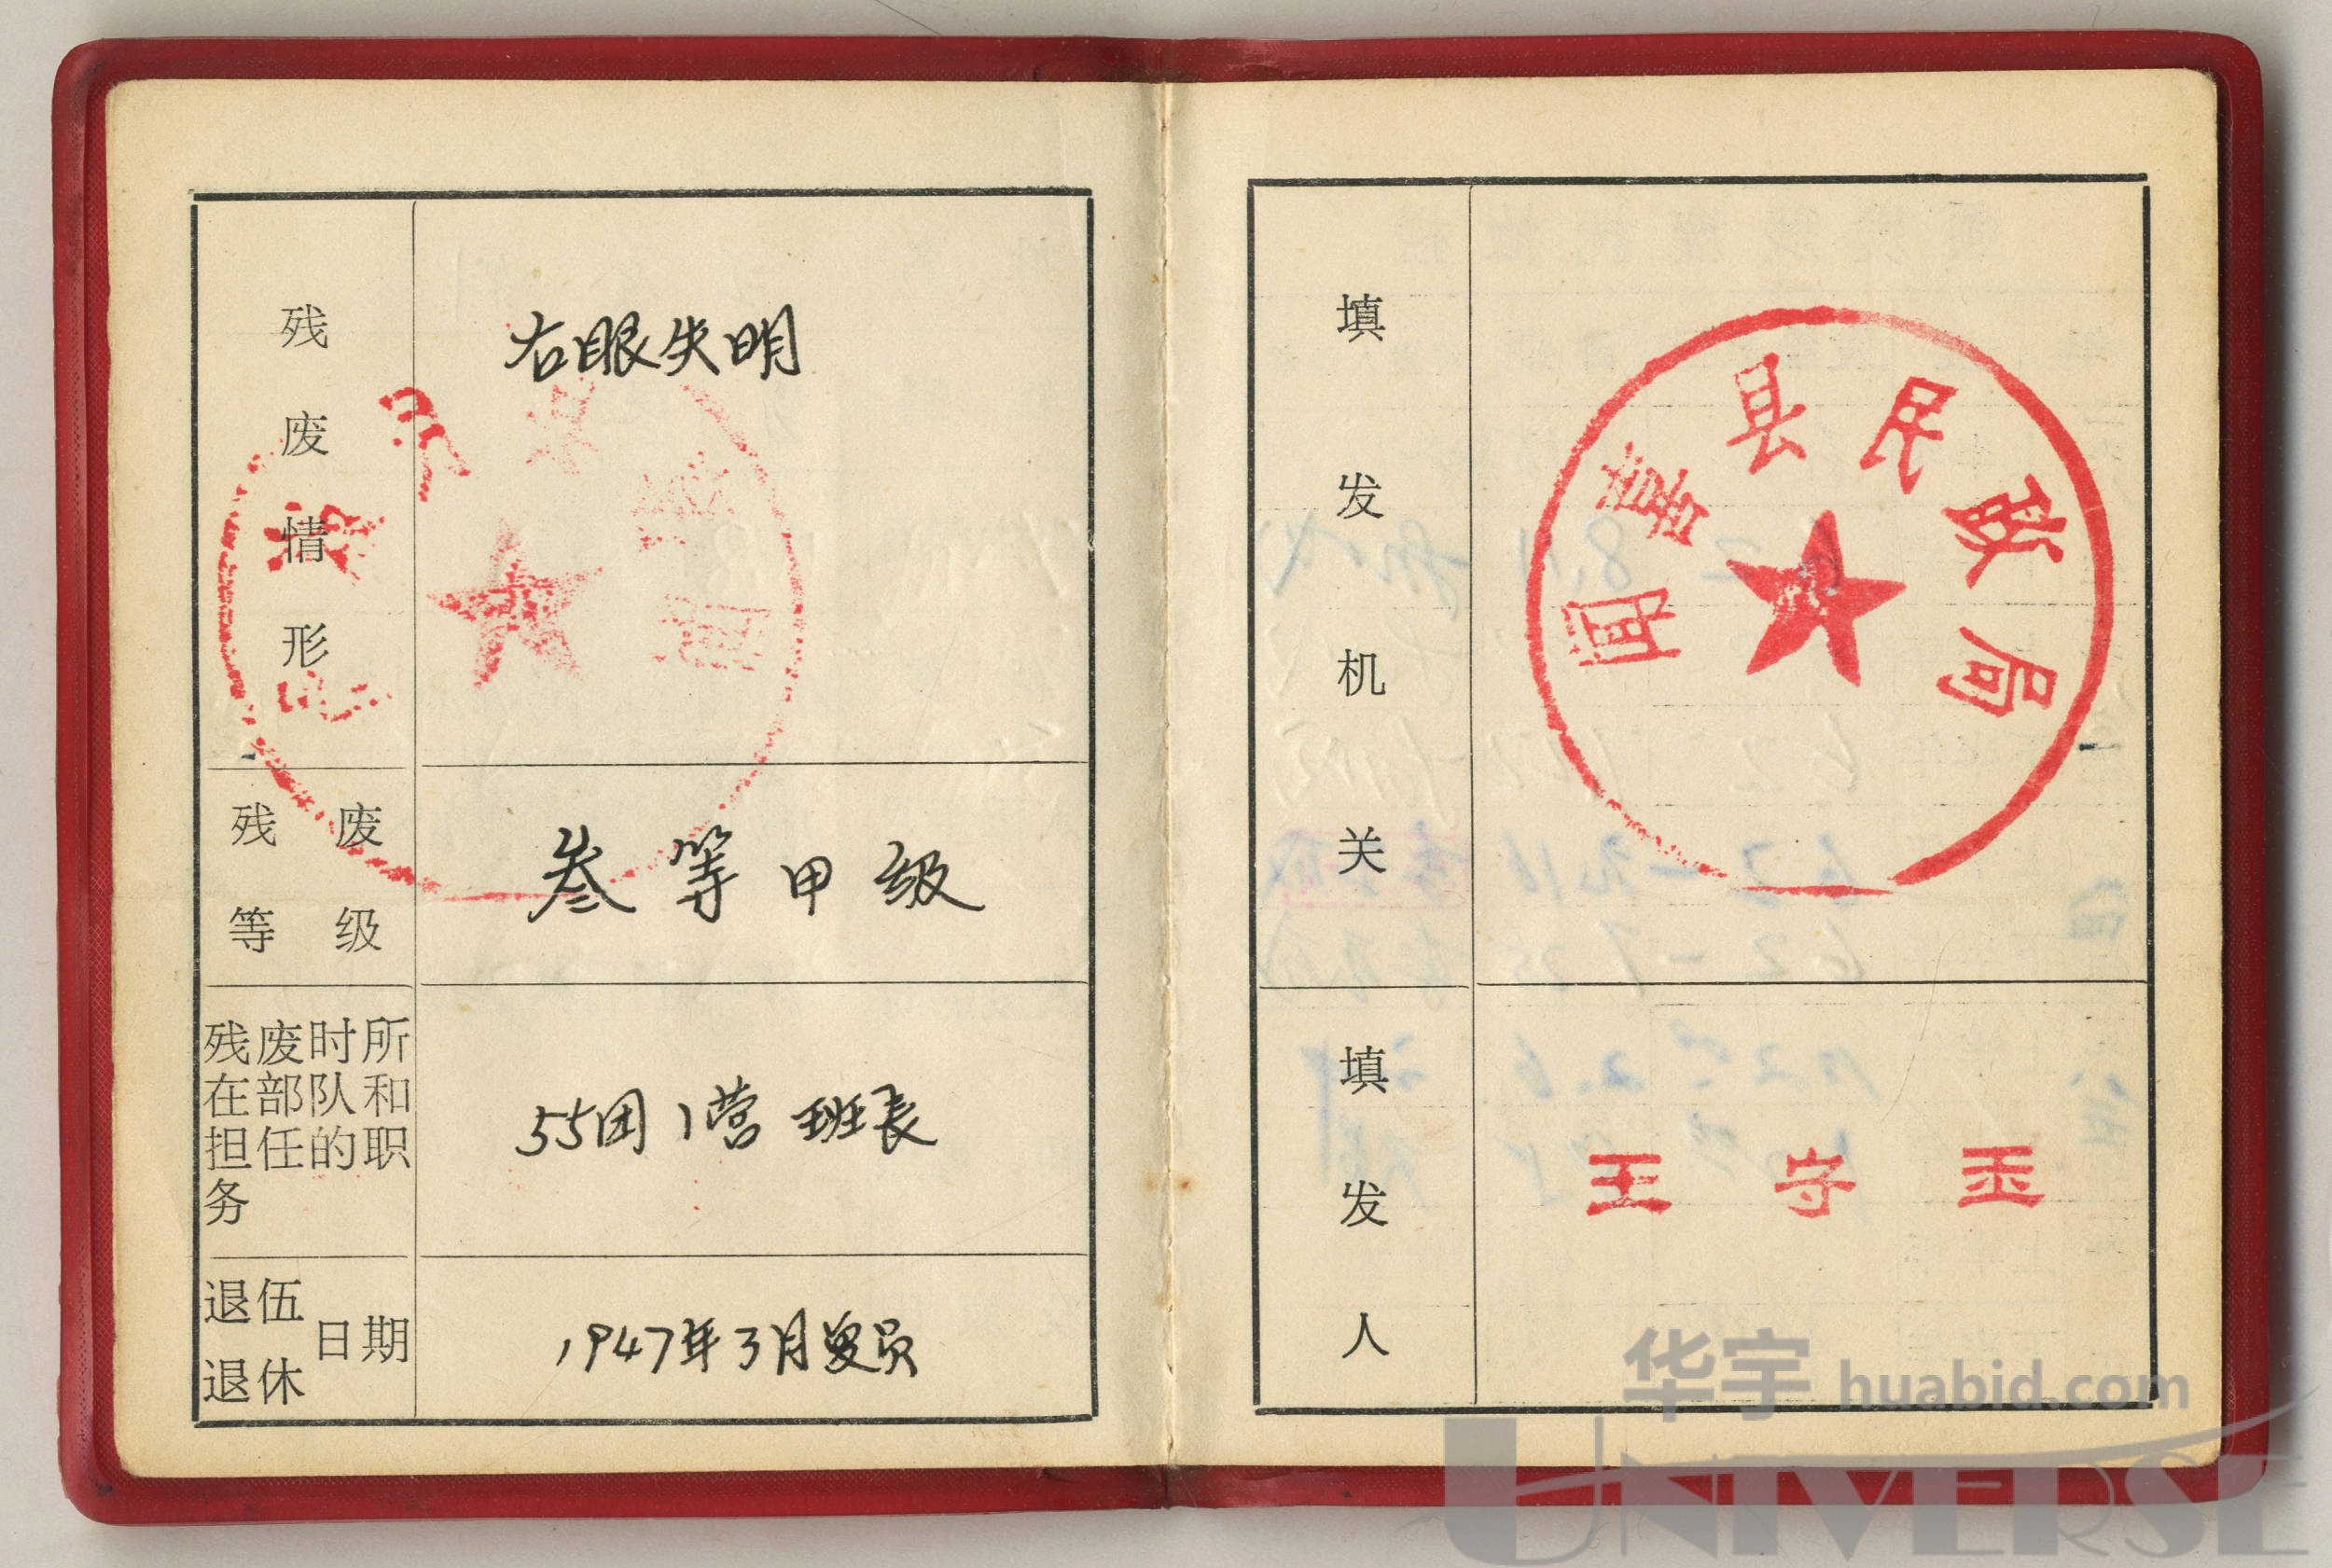 残废情形
右眼失明
残废
等级
叁等甲级
残废时所
在部队和
担任的职
务
55团1营班长
退伍
退休
日期
1947年3月复员
填发机关
县民政局
填发人
王守玉
华宇 huabid.com
UNIVERSE